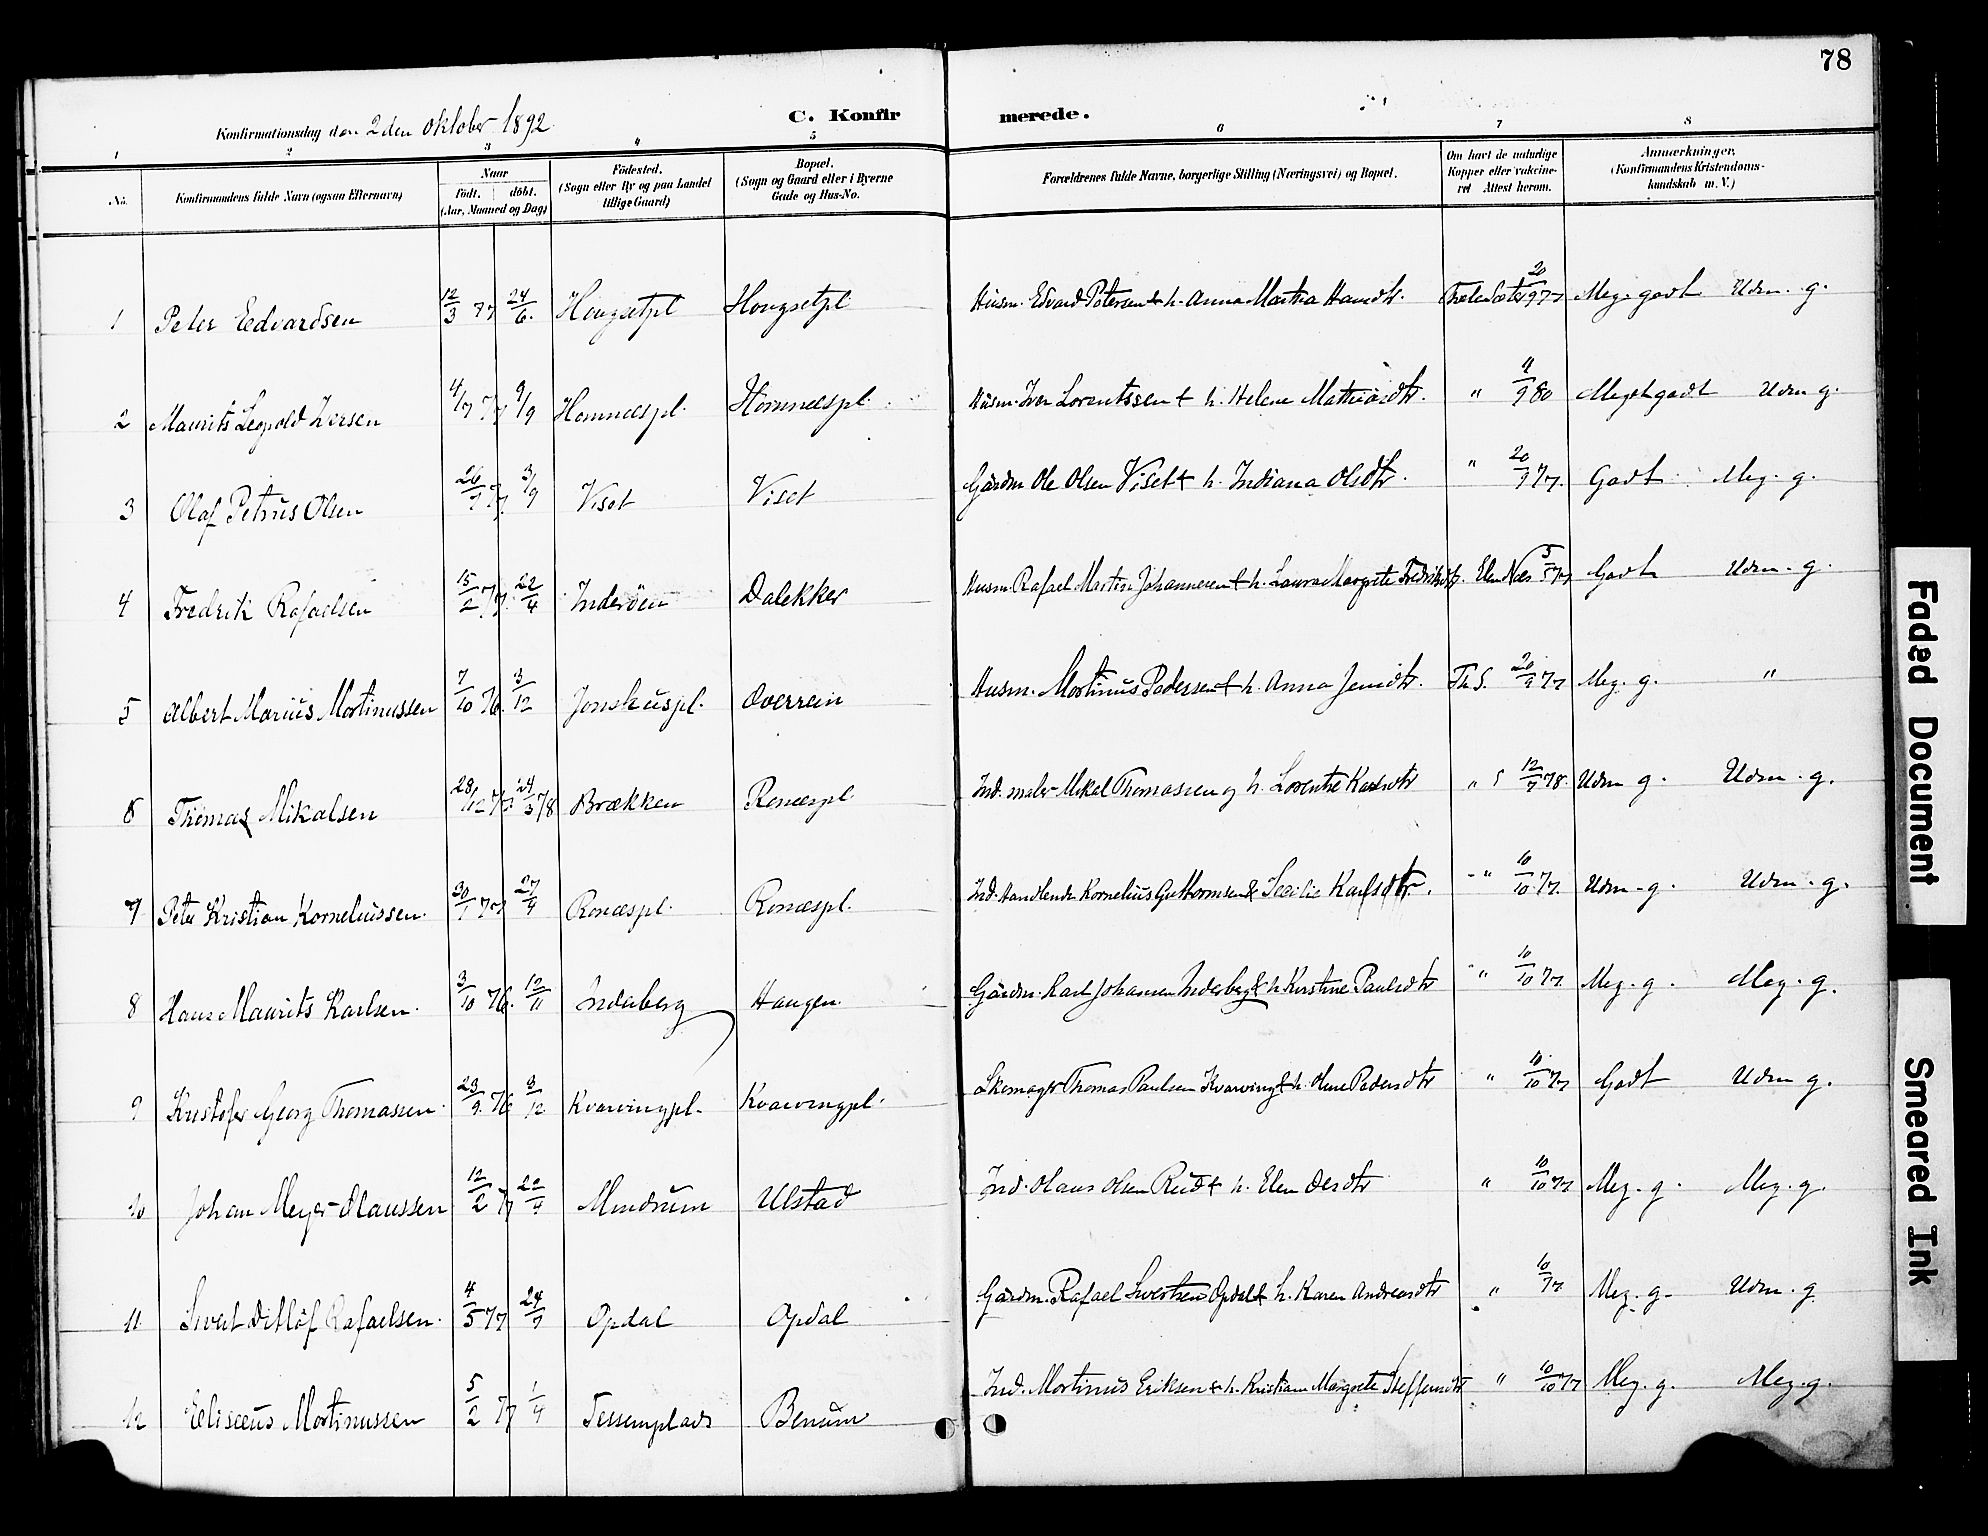 78
Konfirmationsdag den 2den Oktober 1892
C. Konfirmerede.
1 2 3 4 5 6 7 8
No.
Konfirmandens fulde Navn (ogsaa Efternavn)
Naar
født. døbt.
(Aar, Maaned og Dag)
Fødested.
(Sogn eller By og paa Landet
tillige Gaard)
Bopæl.
(Sogn og Gaard eller i Byerne
Gade og Hus-No.
Forældrenes fulde Navne, borgerlige Stilling (Næringsvei) og Bopæl.
Om havt de naturlige
Kopper eller vaccine-
ret Attest herom.
Anmærkninger,
(Konfirmandens Kristendoms-
kundskab m. V.)
1 Peter Edvardsen 12/3 77 24/6. Hougsetpl Hougsetpl Husm. Edvard Petersen & h. Anna Martha Hansdtr. 20/9 77 Meg. godt Udm. g.
2 Maurits Leopold Iversen 4/7 77 9/9 Homnespl. Homnespl. Husm. Iver Lorentssen & h. Helene Mathiasdtr. " 11/9 80 Meget godt Udm g.
3 Olaf Petrus Olsen 26/7 77. 3/9 Viset Viset Gårdm. Ole Olsen Viset & h. Indiana Olsdtr. " 20/9 77. Godt Meg. g.
4 Fredrik Rafaelsen 15/2 77. 22/4 Inderøen Dalekker Husm. Rafael Martin Johannesen & h. Laura Margrete Fredriksdtr. Elen Næs 5/5 77 Godt Udm. g.
5 Albert Marius Mortinussen 7/10 76. 3/12 Jonshuspl. Overrein Husm. Mortinus Pedersen & h. Anna Jensdtr. Th S. 20/9 77 Meg. g. "
6 Thomas Mikalsen 28/12 77. 24/3 78 Brækken Ronæspl Ind. maler Mikal Thomassen og h. Lorentse Karlsdtr " S 12/9 78. Udm g. Udm. g.
7 Peter Kristian Korneliussen. 30/7 77 27/9 Ronæspl. Ronæspl. Ind. Handlende Kornelius Guttormsen & Secilie Karlsdtr. " 10/10 77. Udm. g. Udm. g.
8 Hans Maurits Karlsen. 3/10 76. 12/11 Inderberg Haugen Gårdm. Karl Johansen Inderberg & h. Kirstine Paulsdtr " 10/10 77. Meg. g. Meg. g.
9 Kristofer Georg Thomassen. 23/9 76 3/12 Kvarvingpl. Kvarvingpl. Skomager Thomas Paulsen Kvarving & h. Oline Pedersdtr " 10/10 77 Godt Udm g.
10 Johan Meyer Olaussen 12/2 77 22/4 Mindrum Ulstad Ind. Olaus Olsen Rud & h. Elen Olsdtr " 10/10 77 Meg. g. Meg. g.
11. Sivert Ditlöf Rafaelsen. 4/5 77 24/7 Opdal Opdal Gårdm. Rafael Sivertsen Opdal & h. Karen Andreasdtr " 10/77. Meg. g. Udm. g.
12 Eliseus Mortinussen 5/2 77 1/4 Tessemplads Benum Ind. Mortinus Eriksen & h. Kristiane Margrete Steffensdtr " 10/10 77 Meg. g. Meg. g.
Faded Document
Smeared Ink